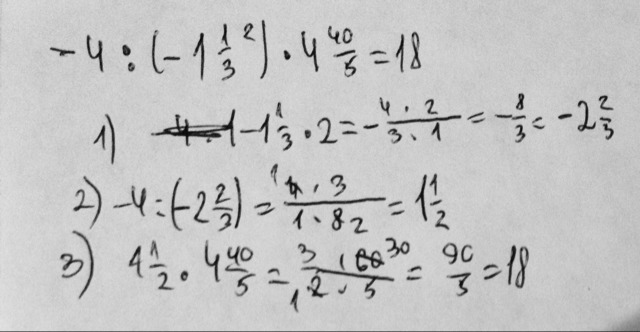 -4 : (-1 1/3 ²) · 4 40/5 = 18
1) -1 1/3 · 2 = - 4 · 2 / 3 · 1 = - 8/3 = -2 2/3
2) -4 : (-2 2/3) = 4 · 3 / 1 · 8 2 = 1 1/2
3) 1 1/2 · 4 40/5 = 3 · 60 30 / 1 2 · 5 = 90/5 = 18